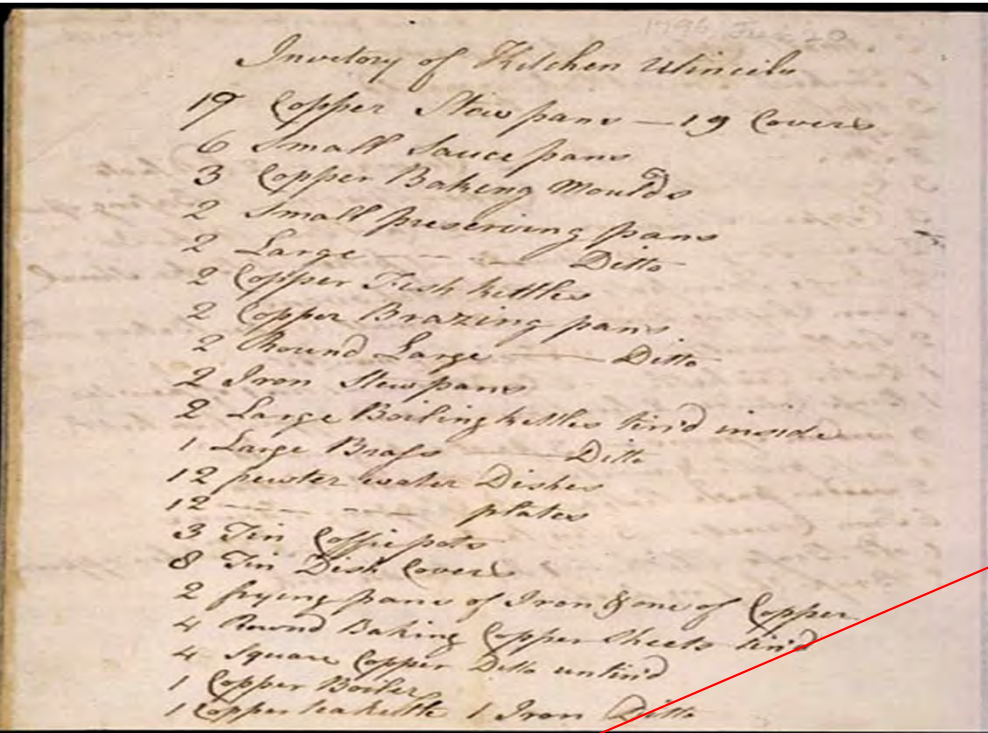 1796 Feb 20
Invetory of Kitchen Utincils
19 Copper Stewpans — 19 Covers
6 Small Saucepans
3 Copper Baking Moulds
2 Small preserving pans
2 Large - - - - Ditto
2 Copper Fish kettles
2 Copper Brazing pans
2 Round Large —— Ditto
2 Iron Stewpans
2 Large Boiling kettles tin'd inside
1 Large Brass —— Ditto
12 pewter water Dishes
12 - - - - - - plates
3 Tin Coffie pots
8 Tin Dish Covers
2 frying pans of Iron & one of Copper
4 Round Baking Copper Sheets tin'd
4 Square Copper Ditto untin'd
1 Copper Boiler
1 Copper teakettle 1 Iron Ditto